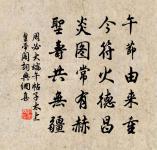 午節由来重
今符火德昌
炎图常有赫
聖壽共無疆
周必大端午帖子太上
皇帝閣 詞典網